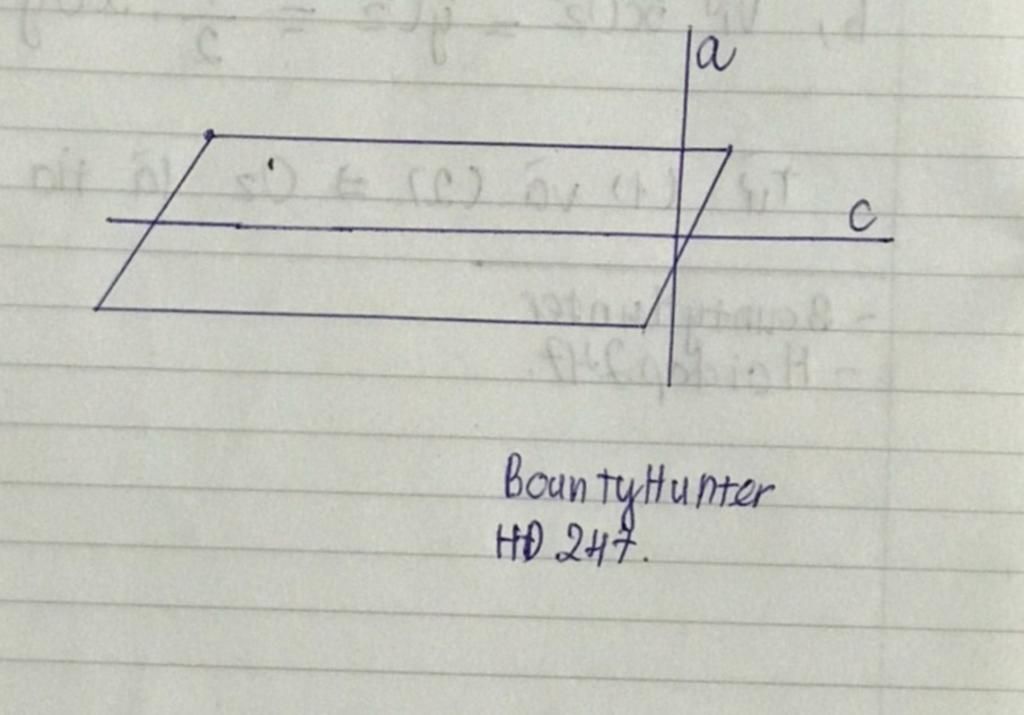 a
c
BountyHunter
HD 247.